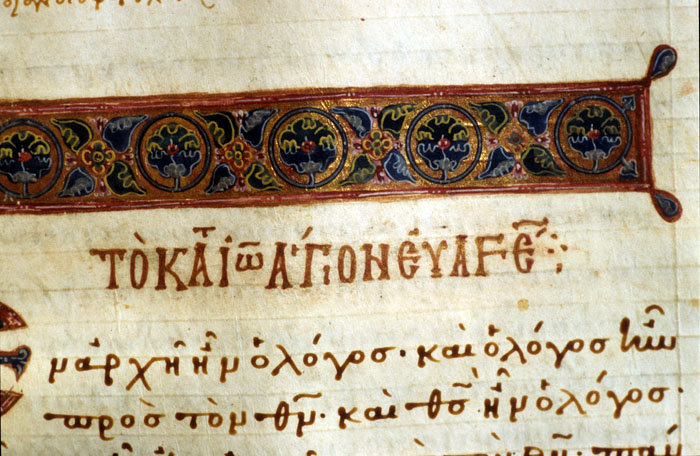 ΤΟ ΚΑΤ ΙΩ ΑΓΙΟΝ ΕΥΑΓΓΕ
Ἐν ἀρχῇ ἦν ὁ λόγος· καὶ ὁ λόγος ἦν
πρὸς τὸν θν· καὶ θς ἦν ὁ λόγος·